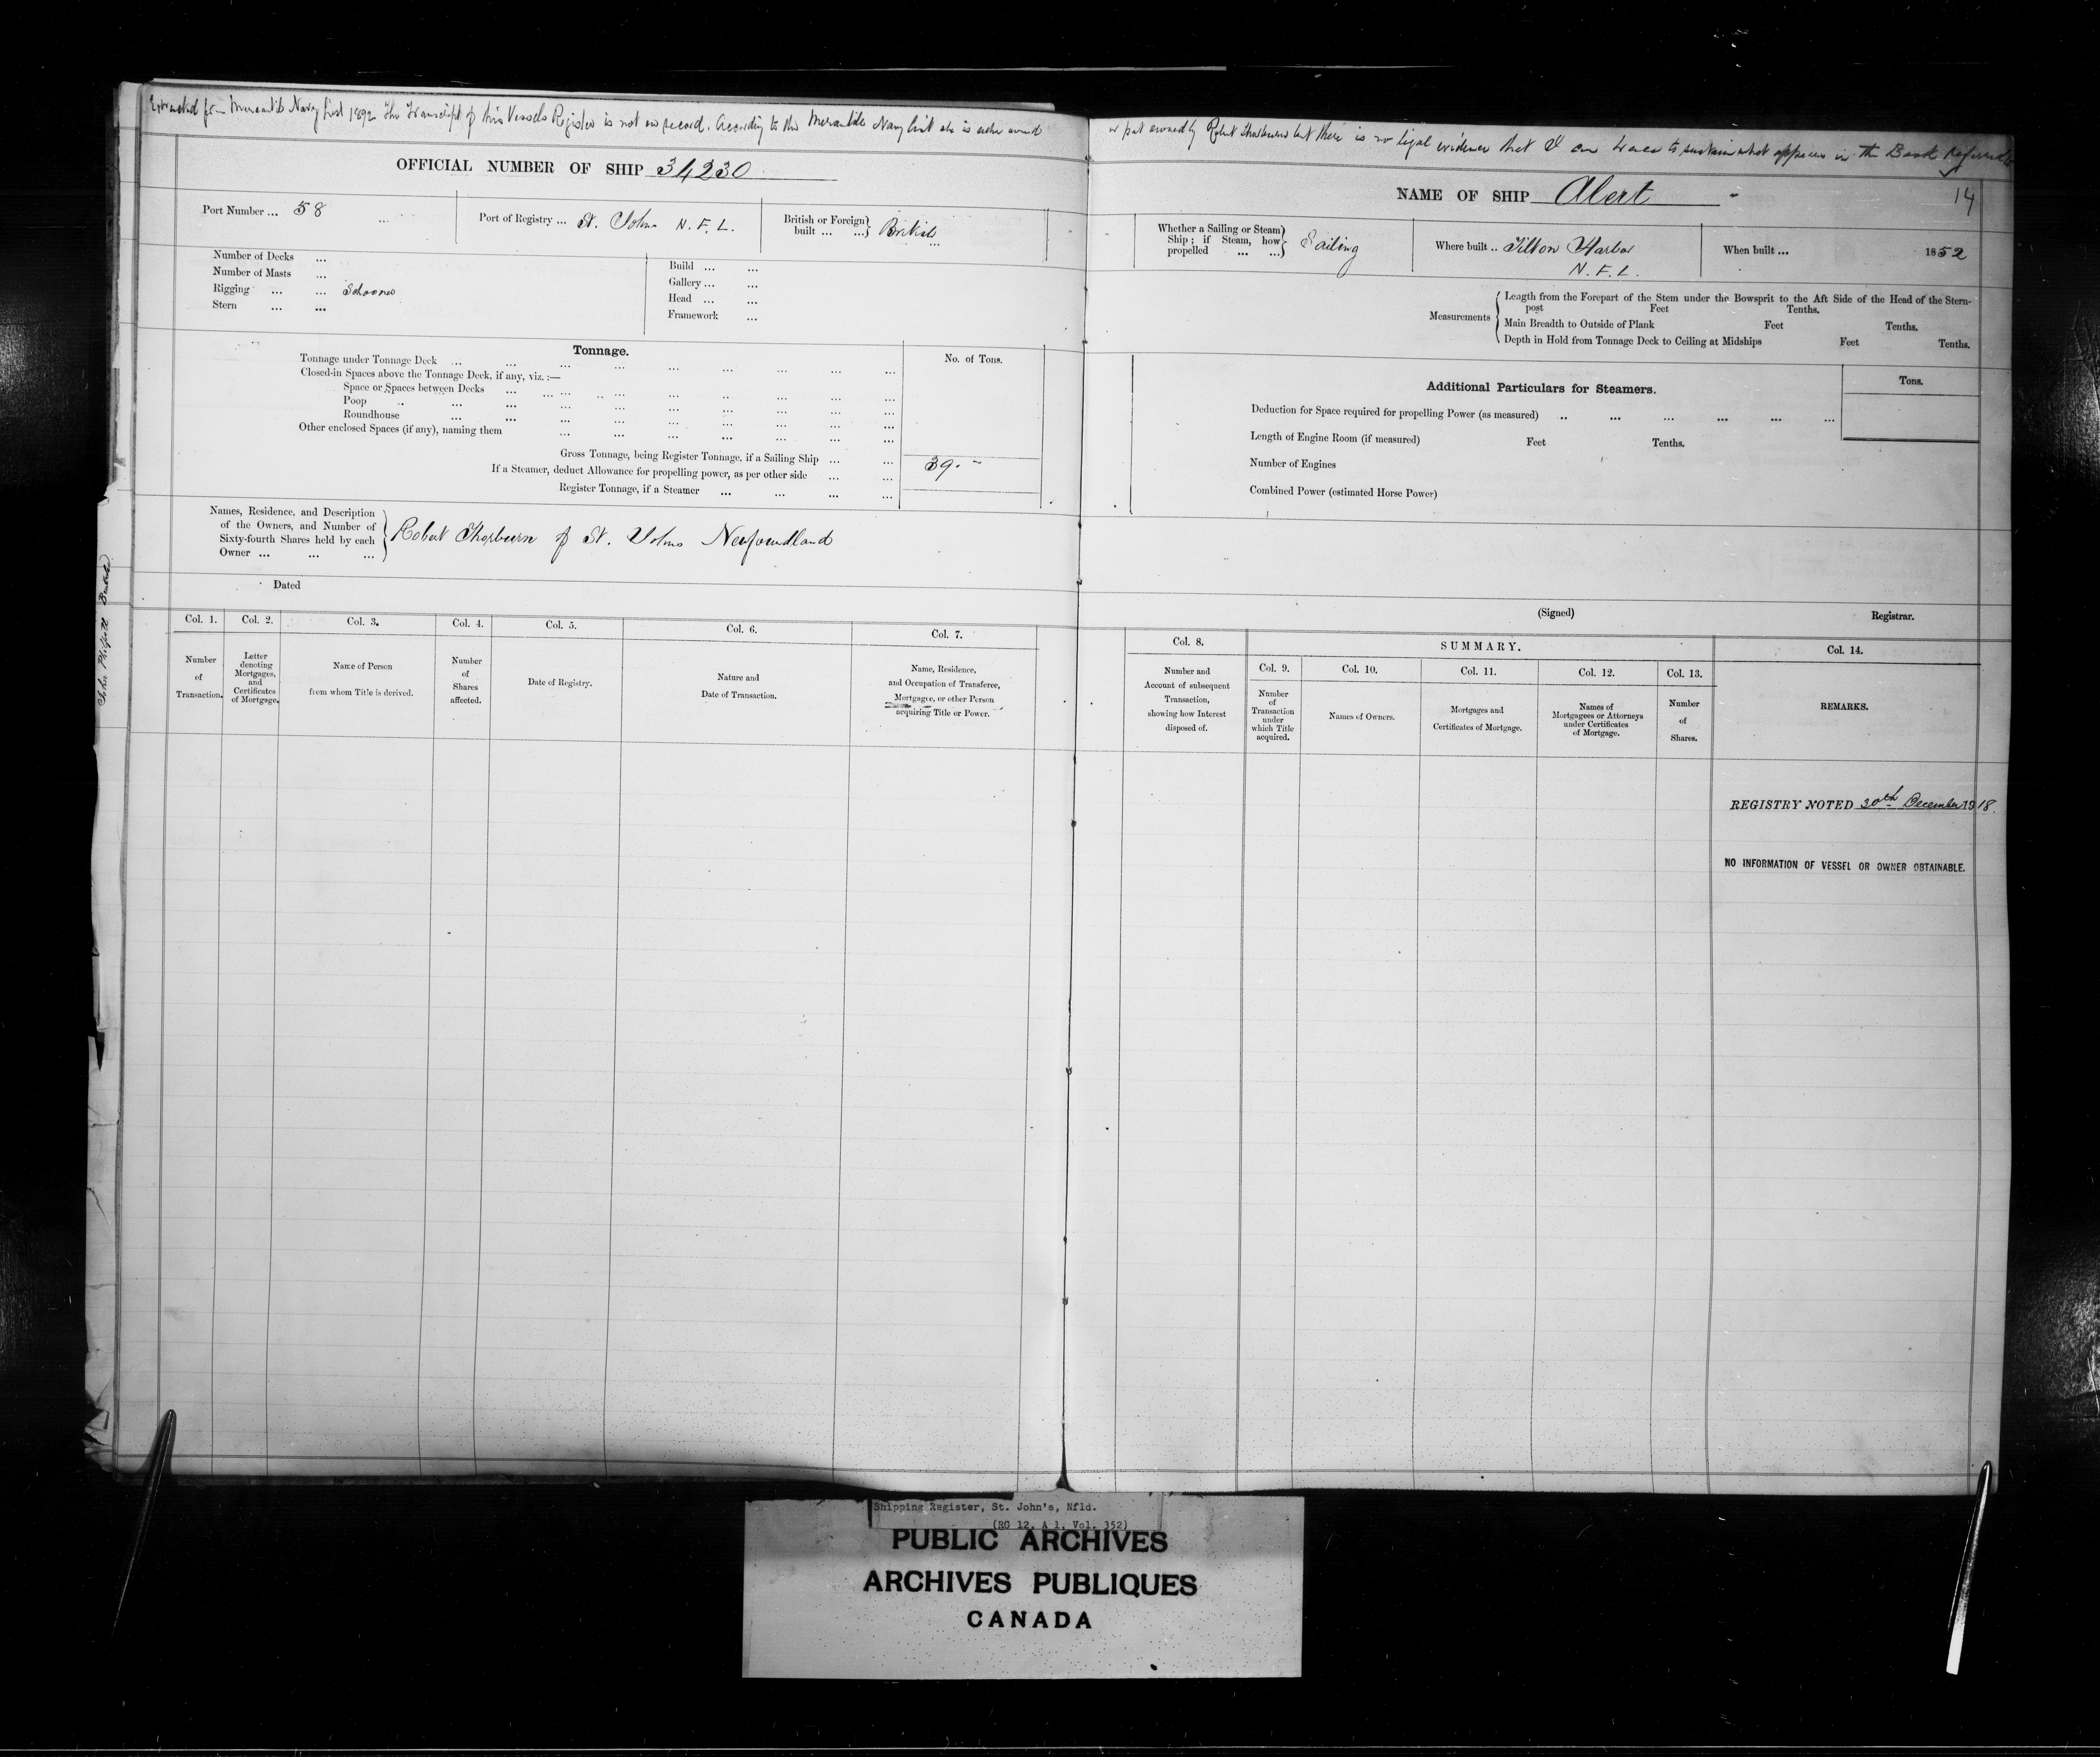 Extracted from Mercantile Navy List 1892 The Transcript of this Vessels Register is not on record. According to the Mercantile Navy List she is either owned
or part owned by Robert Thorburn but there is no legal evidence that I can trace to sustain what appears in the Book referred to
OFFICIAL NUMBER OF SHIP 34230
NAME OF SHIP Alert
14
Port Number ... 58 ...
Port of Registry ... St. Johns N.F.L.
British or Foreign
built ... ... British
Whether a Sailing or Steam
Ship; if Steam, how
propelled ... ... Sailing
Where built .. Tilton Harbor
N.F.L.
When built ... 1852
Number of Decks ...
Number of Masts ...
Rigging ... ... Schooner
Stern ... ...
Build ... ...
Gallery ... ...
Head ... ...
Framework ...
Measurements
Length from the Forepart of the Stem under the Bowsprit to the Aft Side of the Head of the Stern-
post Feet Tenths.
Main Breadth to Outside of Plank Feet Tenths.
Depth in Hold from Tonnage Deck to Ceiling at Midships Feet Tenths.
Tonnage.
No. of Tons.
Tonnage under Tonnage Deck ... ... ... ... ... ... ...
Closed-in Spaces above the Tonnage Deck, if any, viz. :—
Space or Spaces between Decks ... ... ... ... ... ... ...
Poop ... ... ... ... ... ... ... ...
Roundhouse ... ... ... ... ... ... ... ...
Other enclosed Spaces (if any), naming them ... ... ... ... ... ... ...
Gross Tonnage, being Register Tonnage, if a Sailing Ship ... ... 39. -
If a Steamer, deduct Allowance for propelling power, as per other side ... ...
Register Tonnage, if a Steamer ... ... ... ...
Additional Particulars for Steamers.
Tons.
Deduction for Space required for propelling Power (as measured) .. ... ... ... ... ...
Length of Engine Room (if measured) Feet Tenths.
Number of Engines
Combined Power (estimated Horse Power)
Names, Residence, and Description
of the Owners, and Number of
Sixty-fourth Shares held by each
Owner ... ... ...
Robert Thorburn of St. Johns Newfoundland
Dated
(Signed) Registrar.
Col. 1.
Number
of
Transaction.
Col. 2.
Letter
denoting
Mortgages,
and
Certificates
of Mortgage.
Col. 3.
Name of Person
from whom Title is derived.
Col. 4.
Number
of
Shares
affected.
Col. 5.
Date of Registry.
Col. 6.
Nature and
Date of Transaction.
Col. 7.
Name, Residence,
and Occupation of Transferee,
Mortgagee, or other Person
acquiring Title or Power.
Col. 8.
Number and
Account of subsequent
Transaction,
showing how Interest
disposed of.
SUMMARY.
Col. 9.
Number
of
Transaction
under
which Title
acquired.
Col. 10.
Names of Owners.
Col. 11.
Mortgages and
Certificates of Mortgage.
Col. 12.
Names of
Mortgagees or Attorneys
under Certificates
of Mortgage.
Col. 13.
Number
of
Shares.
Col. 14.
REMARKS.
REGISTRY NOTED 30th December 1918.
NO INFORMATION OF VESSEL OR OWNER OBTAINABLE.
Shipping Register, St. John's, Nfld.
(RG 12, A 1, Vol. 352)
PUBLIC ARCHIVES
ARCHIVES PUBLIQUES
CANADA